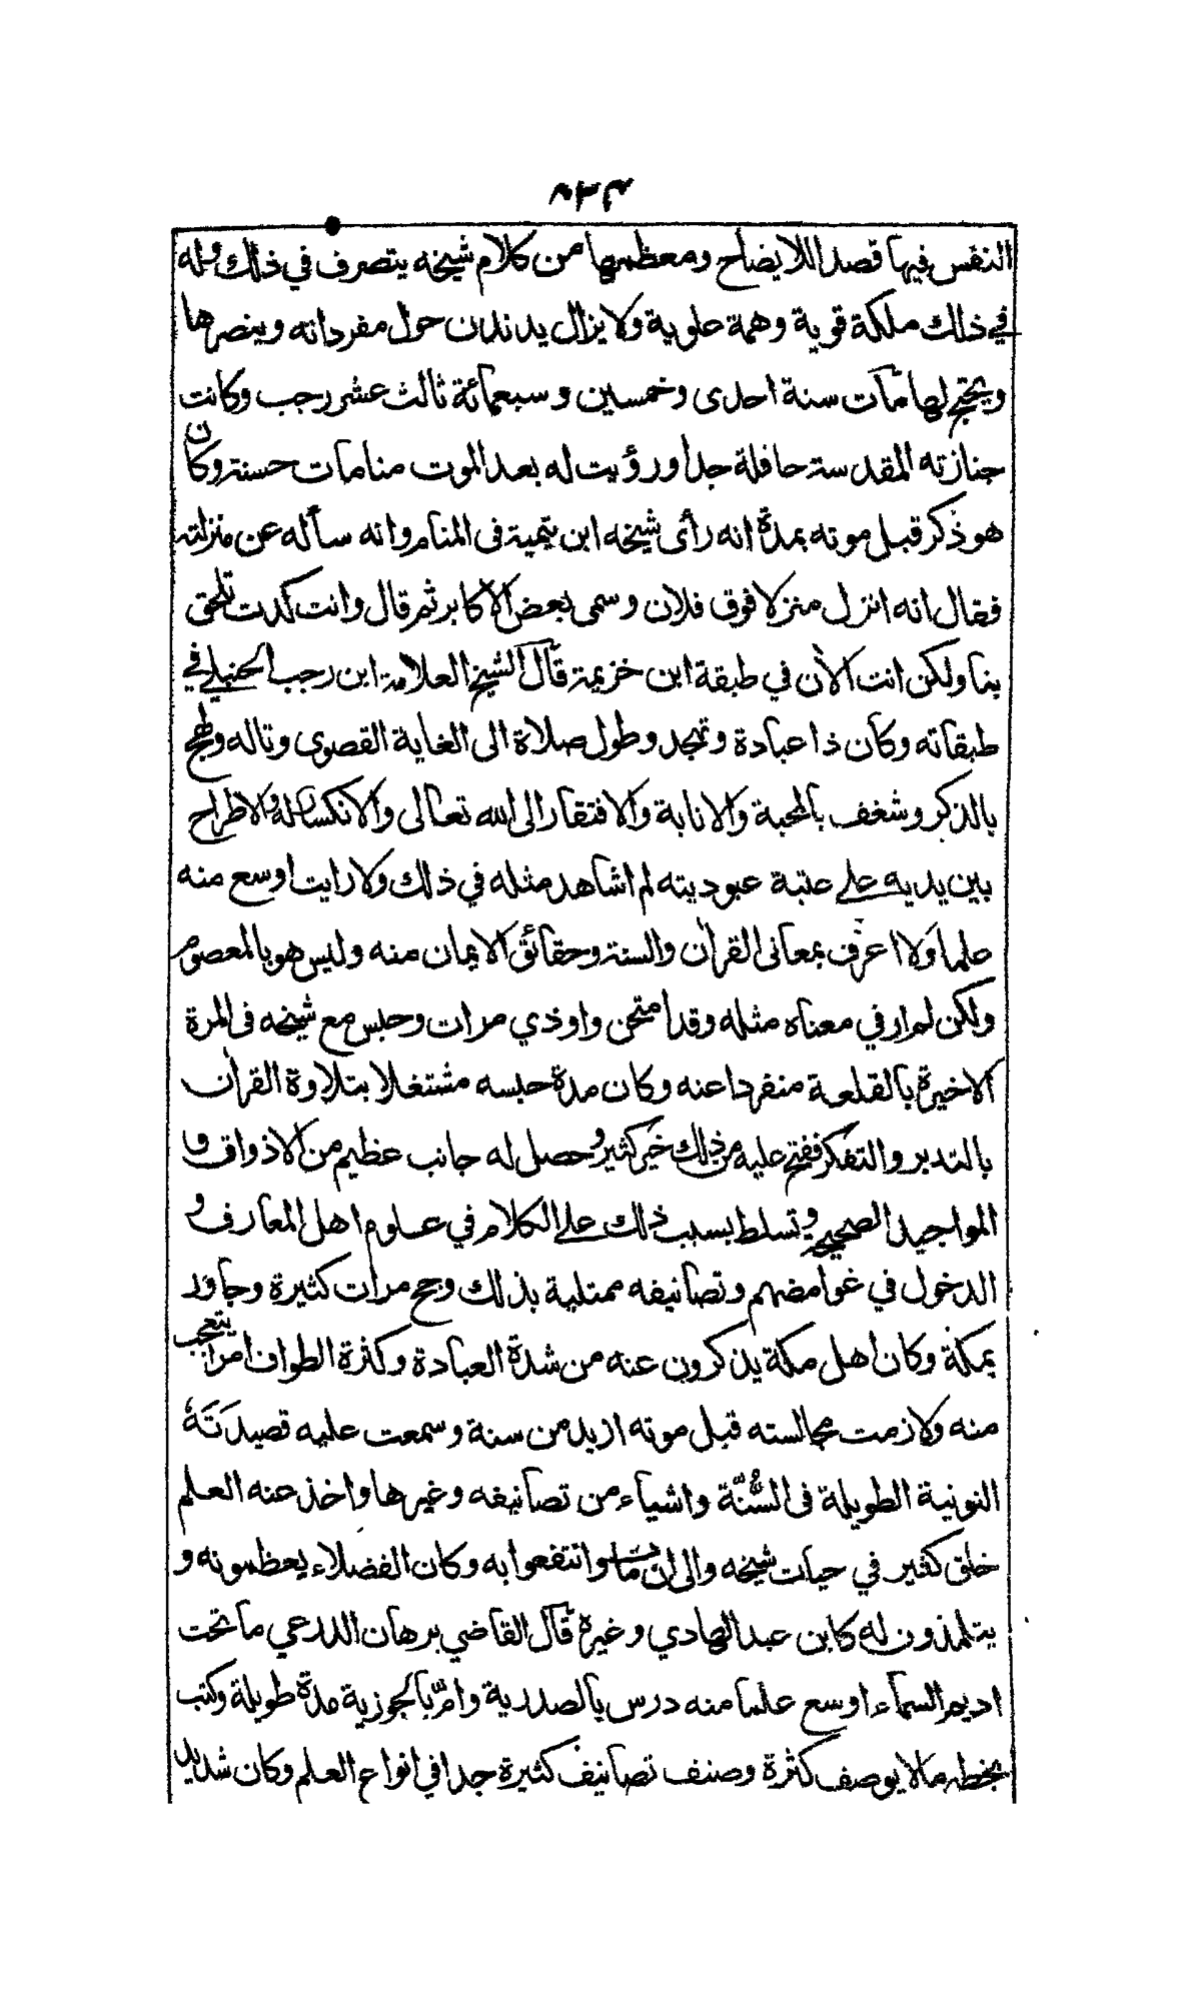 النفس فيها قصدا للايضاح ومعظمها من كلام شيخه يتصرف في ذلك وله
في ذلك ملكة قوية وهمة علوية ولا يزال يدندن حول مفرداته وينصرها
ويحتج لها مات سنة احدى وخمسين وسبعمائة ثالث عشر رجب وكانت
جنازته المقدسة حافلة جدا ورؤيت له بعد الموت منامات حسنة وكان
هو ذكر قبل موته بمدة انه رأى شيخه ابن تيمية فى المنام وانه سأله عن منزلته
فقال انه انزل منزلا فوق فلان وسمى بعض الاكابر ثم قال وانت كدت تلحق
بنا ولكن انت الآن في طبقة ابن خزيمة قال الشيخ العلامة ابن رجب الحنبلي في
طبقاته وكان ذا عبادة وتهجد وطول صلاة الى الغاية القصوى وتاله ولهج
بالذكر وشغف بالمحبة والانابة والافتقار الى الله تعالى والانكسار له والاطراح
بين يديه على عتبة عبوديته لم اشاهد مثله في ذلك ولا رايت اوسع منه
علما ولا اعرف بمعانى القرآن والسنة وحقائق الايمان منه وليس هو بالمعصوم
ولكن لم ار في معناه مثله وقد امتحن واوذي مرات وحبس مع شيخه فى المرة
الاخيرة بالقلعة منفردا عنه وكان مدة حبسه مشتغلا بتلاوة القرآن
بالتدبر والتفكر ففتح عليه من ذلك خير كثير وحصل له جانب عظيم من الاذواق و
المواجيد الصحيحة وتسلط بسبب ذلك على الكلام في علوم اهل المعارف و
الدخول في غوامضهم وتصانيفه ممتلية بذلك وحج مرات كثيرة وجاور
بمكة وكان اهل مكة يذكرون عنه من شدة العبادة وكثرة الطواف امرا يتعجب
منه ولازمت مجالسته قبل موته ازيد من سنة وسمعت عليه قصيدَتَهُ
النونية الطويلة فى السُّنّة واشياء من تصانيفه وغيرها واخذ عنه العلم
خلق كثير في حيات شيخه والى ان مات وانتفعوا به وكان الفضلاء يعظمونه و
يتلمذون له كابن عبد الهادي وغيره قال القاضي برهان الدرعي ما تحت
اديم السماء اوسع علما منه درس بالصدرية وامّ بالجوزية مدة طويلة وكتب
بخطه ما لا يوصف كثرة وصنف تصانيف كثيرة جدا في انواع العلم وكان شديد